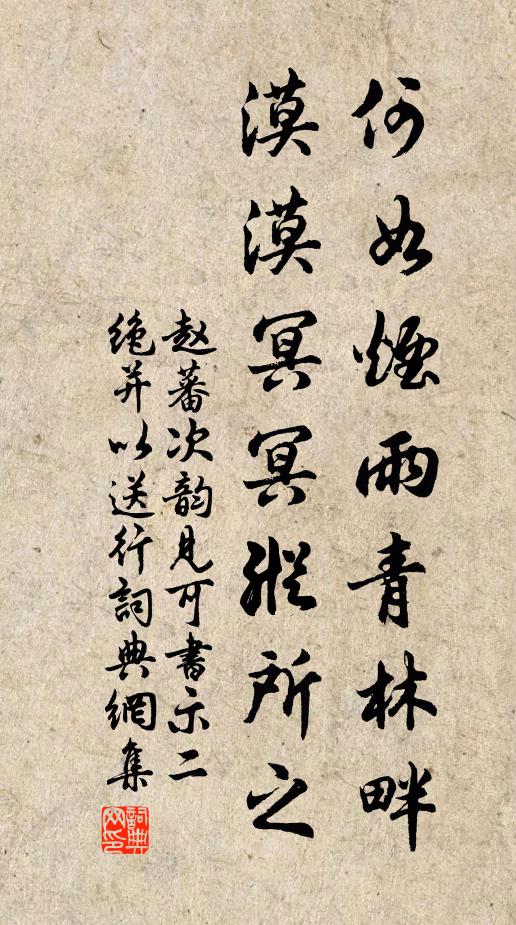 何如煙雨青林畔
漠漠冥冥縱所之
赵蕃次韵見可書示二
絶并以送行詞典網集
詞典
网印